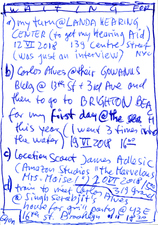 WAITING FOR
a) my turn @ LANDA HEARING
CENTER (to get my Hearing Aid)
12 VI 2018 139 Centre Street
(was just an interview) NYC
b) Carlos Alves @ their GOWANUS
Bldg @ 13th St + 3rd Ave and
then to go to BRIGHTON BEA
for my first day @ the sea
this year (I went 3 times into
the water) 19 VI 2018 16 00
c) Location Scout James Adlesic
(Amazon Studios "The Marvelous
Mrs. Maisel")
d) train to meet Carlos
@ Singh
house
16th St. Brooklyn